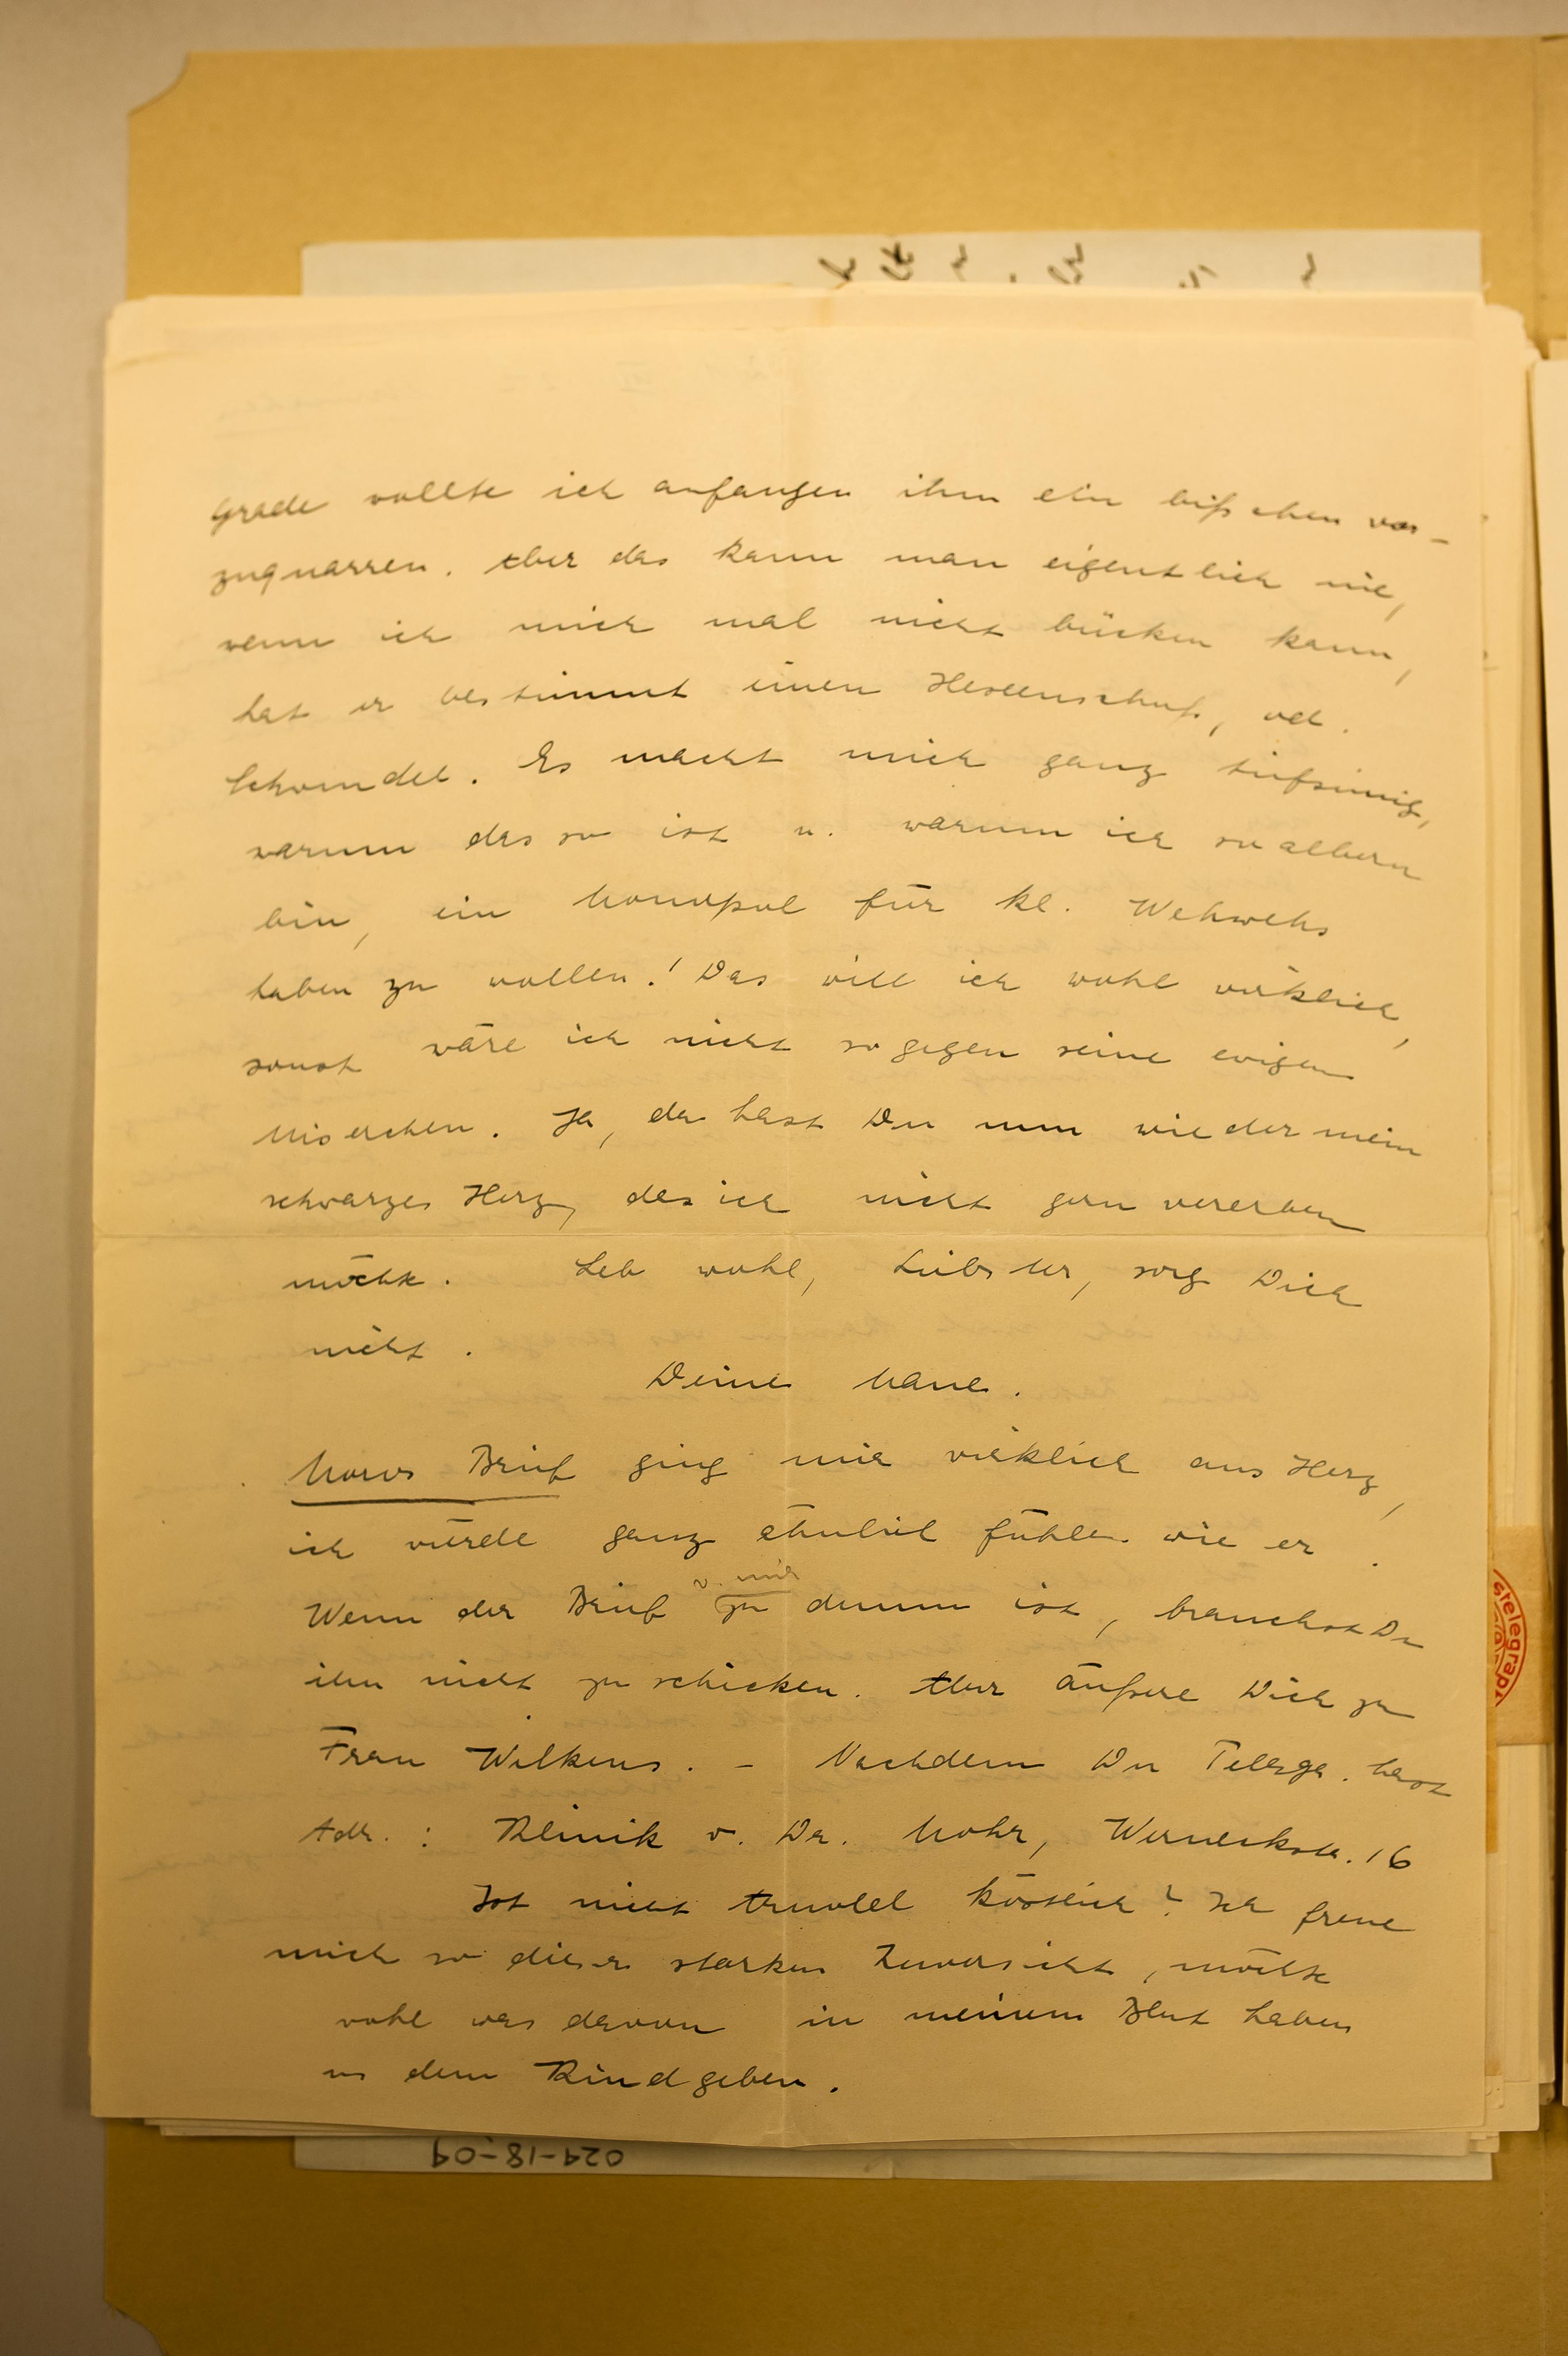 grade wollte ich anfangen ihm ein bißchen vor-
zuquarren. Aber das kann man eigentlich nie,
wenn ich mich mal nicht bücken kann,
hat er bestimmt einen Hexenschuß, od.
Schwindel. Es macht mich ganz tiefsinnig,
warum das so ist u. warum ich so albern
bin, ein Monopol für kl. Wehwehs
haben zu wollen! Das will ich wohl wirklich,
sonst wäre ich nicht so gegen seine ewigen
Miserchen. Ja, da hast Du nun wieder mein
schwarzes Herz, das ich nicht gern vererben
möchte. Leb wohl, Liebster, sorg Dich
nicht.
Deine Mane.
Brief ging mir wirklich ans Herz,
ich würde ganz ähnlich fühlen wie er.
v. mir
Wenn der Brief zu dumm ist, brauchst Du
ihn nicht zu schicken. Aber äußere Dich zu
Frau Wilkens. – Nachdem Du Telegr. hast
Adr.: Klinik v. Dr. Mohr, Werneckstr. 16
Ist nicht köstlich? Ich freue
mich so dieser starken Zuversicht, möchte
wohl was davon in meinem Blut haben
us dem Kind geben.
029-18-09